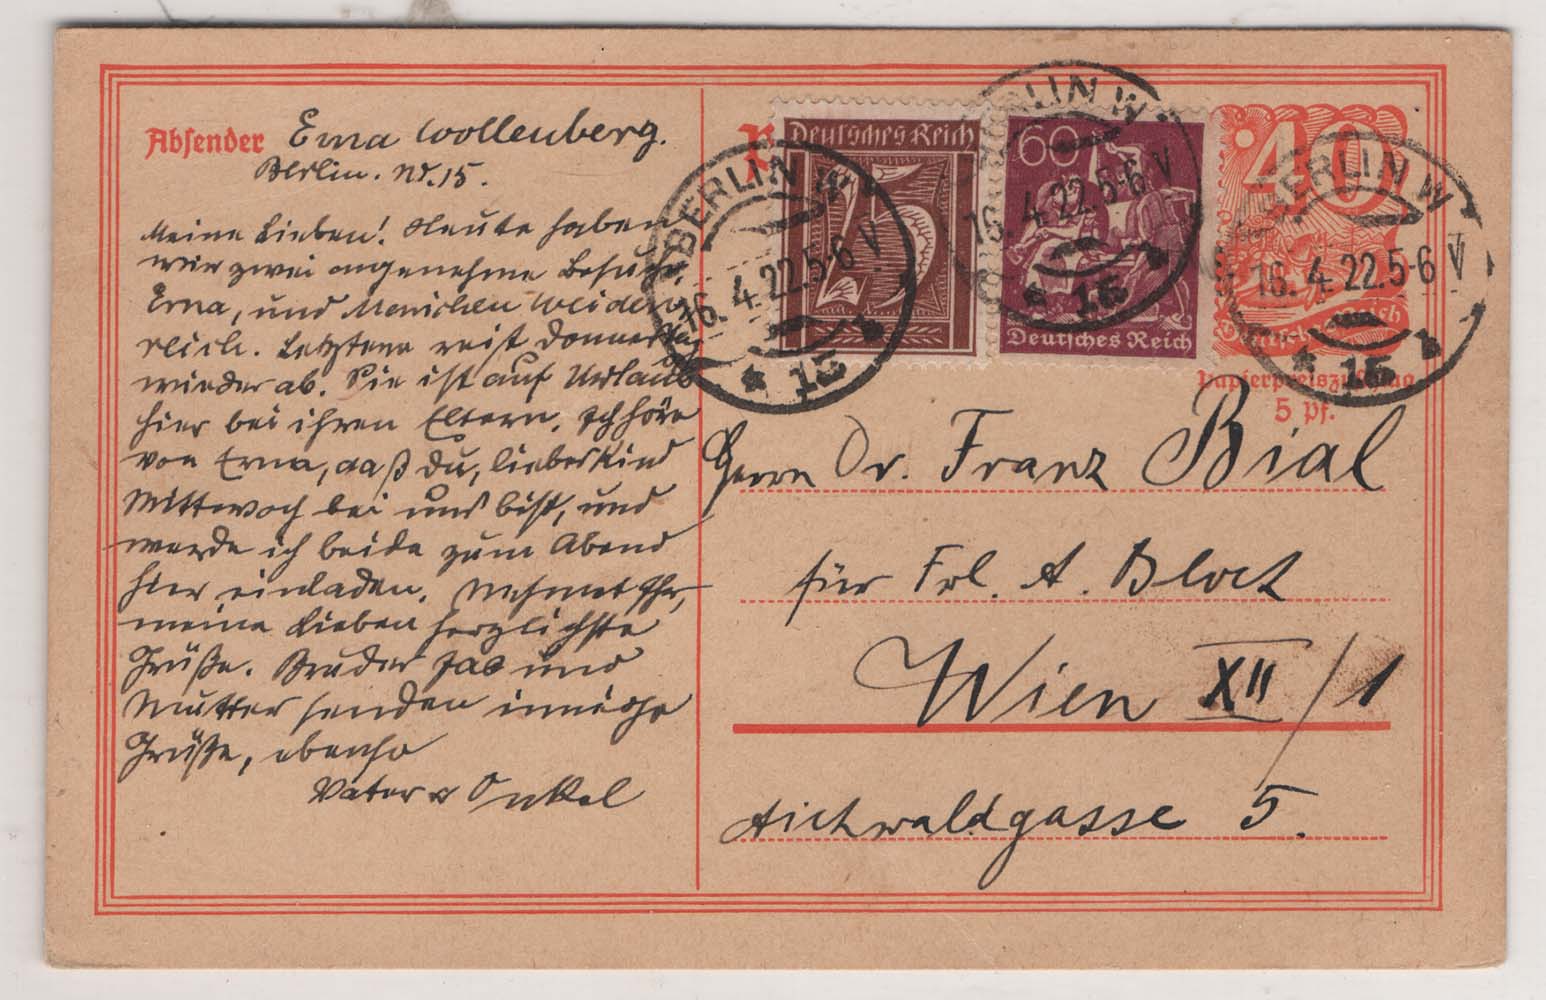 Absender Erna Wollenberg.
Berlin. W.15.
Meine Lieben! Heute haben
wir zwei angenehme Besuche,
Erna, und
reich. Letztere reist Donnerstag
wieder ab. Sie ist auf Urlaub
hier bei ihren Eltern. Ich höre
von Erna, daß Du, liebes Kind
Mittwoch bei uns bist, und
werde ich beide zum Abend
hier einladen. Nehmet Ihr,
meine Lieben herzlichste
Grüße. Bruder und
Mutter senden innige
Grüße, ebenso
Vater u Onkel
Deutsches Reich
75
60
Deutsches Reich
40
Deutsches Reich
BERLIN W
16. 4. 22. 5-6 V
* 15 b
BERLIN W
16. 4. 22. 5-6 V
* 15 b
BERLIN W
16. 4. 22. 5-6 V
* 15 b
Papierpreiszuschlag
5 Pf.
Herrn Dr. Franz Bial
für Frl. A. Bloch
Wien XII/1
Aichwaldgasse 5.